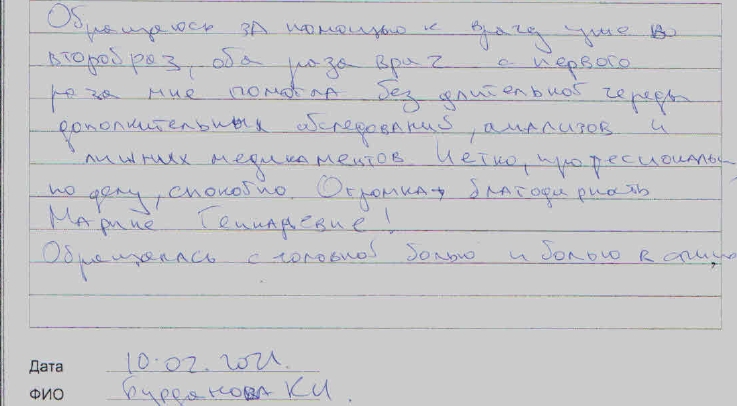 Обращаюсь за помощью к врачу уже во
второй раз, оба раза врач с первого
раза мне помогла без длительной череды
дополнительных обследований, анализов и
лишних медикаментов. Четко, професиональн
по делу, спокойно. Огромная благодарность
Марине Геннадьевне!
Обращалась с головной болью и болью в спине,
Дата 10.02.2021.
ФИО К И